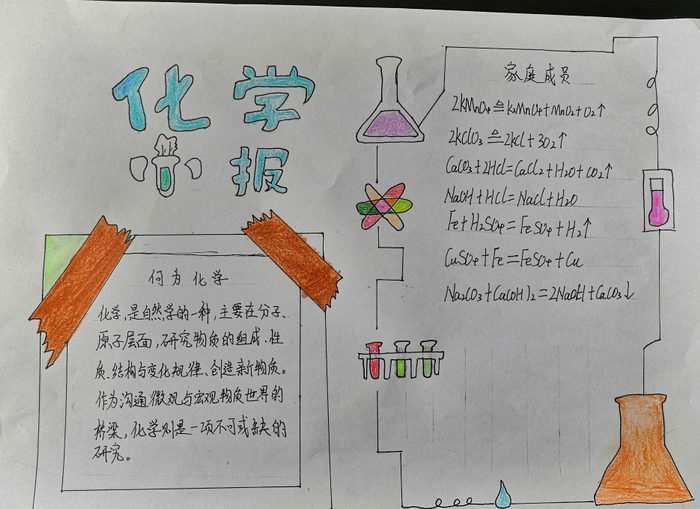 化学
小报
何为化学
化学,是自然学的一种,主要在分子、
原子层面,研究物质的组成.性
质.结构与变化规律、创造新物质。
作为沟通微观与宏观物质世界的
桥梁,化学则是一项不可或缺的
研究。
家庭成员
2KMnO4≙K2MnO4+MnO2+O2↑
2KClO3≙2KCl+3O2↑
CaCO3+2HCl=CaCl2+H2O+CO2↑
NaOH+HCl=NaCl+H2O
Fe+H2SO4=FeSO4+H2↑
CuSO4+Fe=FeSO4+Cu
Na2CO3+Ca(OH)2=2NaOH+CaCO3↓